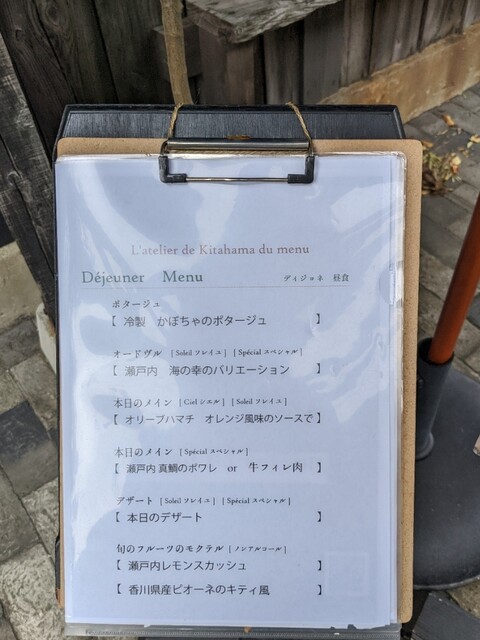 L'atelier de Kitahama du menu
Déjeuner Menu ディジョネ 昼食
ポタージュ
【 冷製 かぼちゃのポタージュ 】
オードヴル [ Soleil ソレイユ ] [ Spécial スペシャル ]
【 瀬戸内 海の幸のバリエーション 】
本日のメイン [ Ciel シエル ] [ Soleil ソレイユ ]
【 オリーブハマチ オレンジ風味のソースで 】
本日のメイン [ Spécial スペシャル ]
【 瀬戸内 真鯛のポワレ or 牛フィレ肉 】
デザート [ Soleil ソレイユ ] [ Spécial スペシャル ]
【 本日のデザート 】
旬のフルーツのモクテル [ ノンアルコール ]
【 瀬戸内レモンスカッシュ 】
【 香川県産ピオーネのキティ風 】